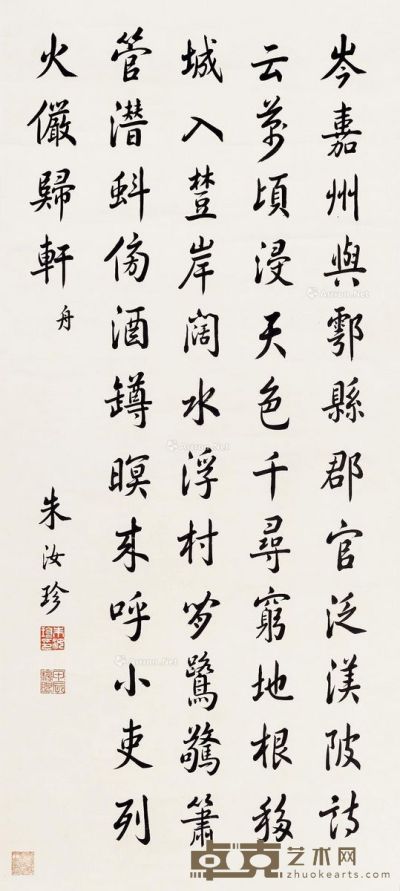 岑嘉州與鄠縣郡官泛渼陂詩
云萬頃浸天色千尋窮地根移
城入樹岸闊水浮村閒鷺驚簫
管潛蚪傍酒罇暝來呼小吏列
火儼歸軒 舟
朱汝珍
卓克艺术网
www.zhuokearts.com